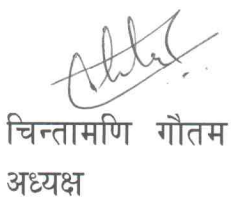 चिन्तामणि गौतम
अध्यक्ष